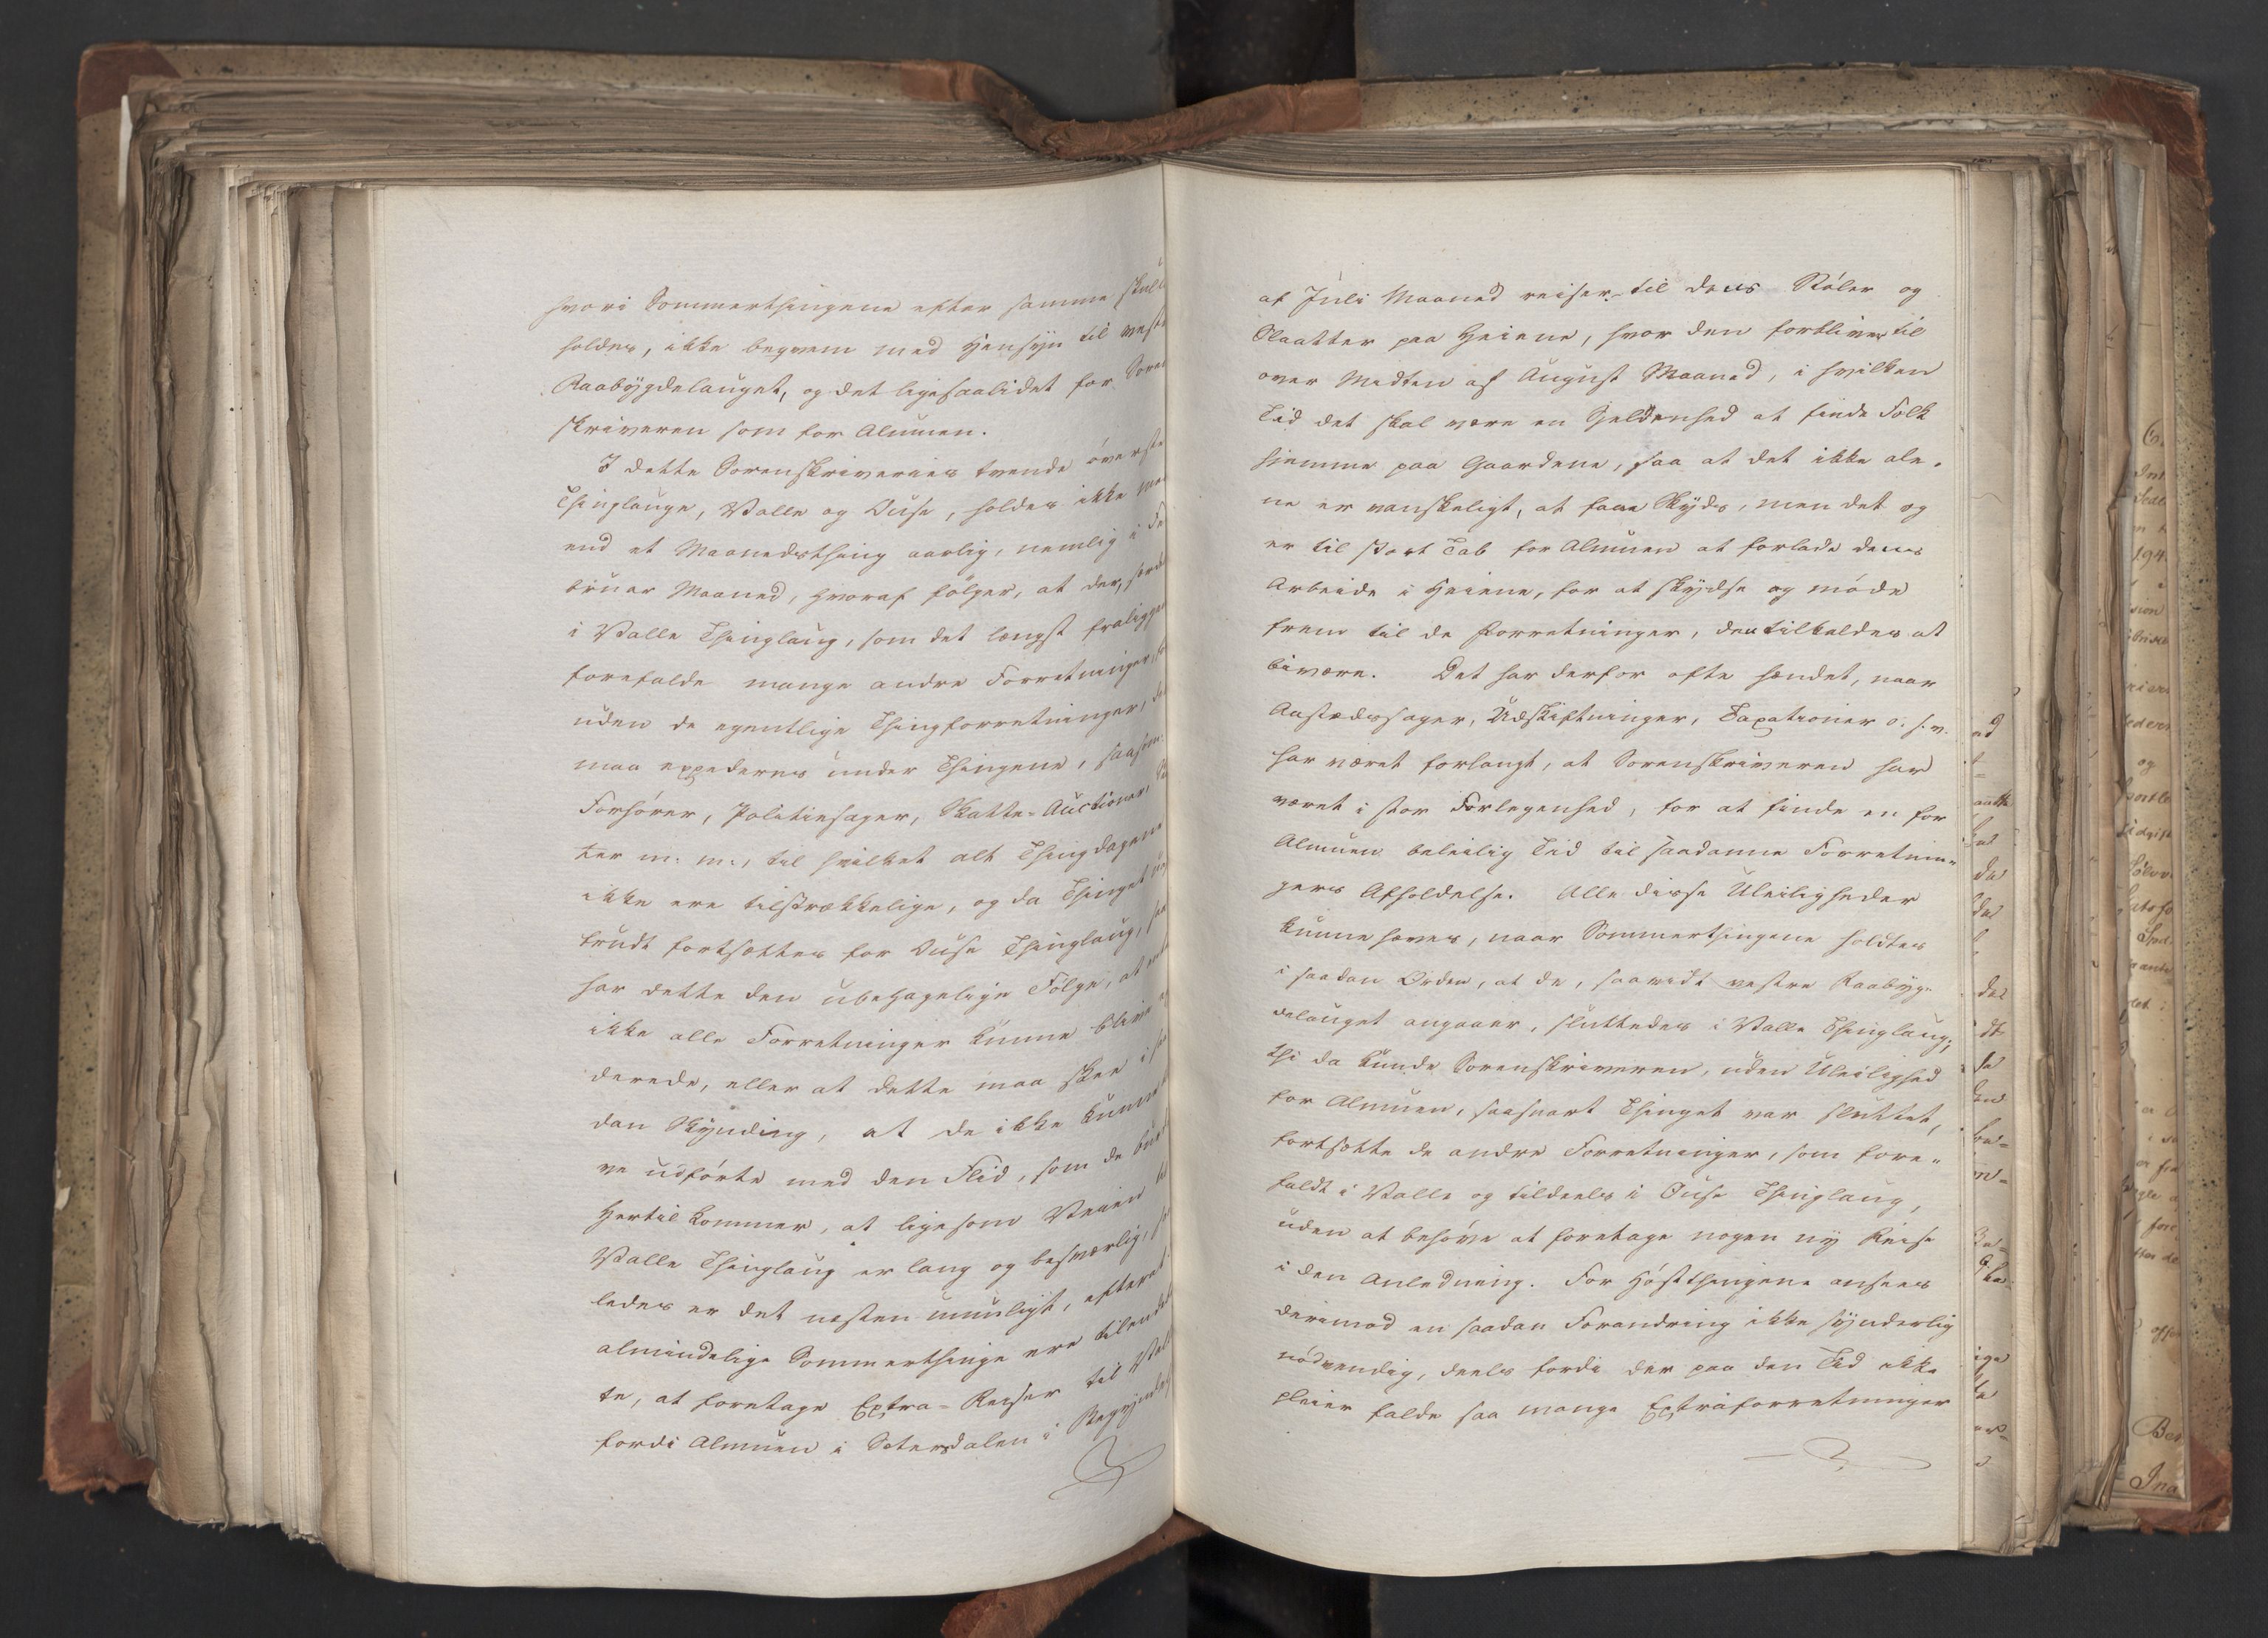 hvori Sommerthingene efter samme skull
holdes, ikke beqvem med Hensyn til vest
Raabygdelauget, og det ligesaalidet for Soren
skriveren som for Almuen.
I dette Sorenskriveries tvende överste
Thinglauge, Valle og Ouse, holdes ikke mer
end et Maanedsthing aarlig, nemlig i Fe
bruar Maaned, hvoraf fölger, at der,
i Valle Thinglaug, som det længst fraliggen
forefalde mange andre Forretninger,
uden de egentlige Thingforretninger, de
maa expederes under Thingene, saasom:
Forhörer, Politiesager, Skatte-Auctioner,
ter m: m:, til hvilket alt Thingdagene
ikke ere tilstrækkelige, og da Thinget
brudt fortsættes for Ouse Thinglaug,
har dette den ubehagelige Fölge, at
ikke alle Forretninger kunne blive
derede, eller at dette maa skee i
dan Skynding, at de ikke kunne
ve udförte med den Flid, som de burde
Hertil kommer, at ligesom Veien
Valle Thinglaug er lang og besværlig,
ledes er det næsten umuligt, efterat
almindelige Sommerthinge ere tilende
te, at foretage Extra-Reiser til Val
fordi Almuen i Sætersdalen i Begynde
af Juli Maaned reiser til dens Stöler og
Slaatter paa Heiene, hvor den forbliver til
over Midten af August Maaned, i hvilken
Tid det skal være en Sjeldenhed at finde Folk
hjemme paa Gaardene, saa at det ikke ale-
ne er vanskeligt, at faae Skyds, men det og
er til stort Tab for Almuen at forlade dens
Arbeide i Heiene, for at skydse og möde
frem til de Forretninger, den tilkaldes at
bivære. Det har derfor ofte hændet, naar
Aastedssager, Udskiftninger, Taxationer o. s. v.
har været forlangt, at Sorenskriveren har
været i stor Forlegenhed, for at finde en for
Almuen beleilig Tid til saadanne Forretnin-
gers Afholdelse. Alle disse Uleiligheder
kunne hæves, naar Sommerthingene holdtes
i saadan Orden, at de, saavidt vestre Raabyg-
delauget angaaer, sluttedes i Valle Thinglaug;
thi da kunde Sorenskriveren, uden Uleilighed
for Almuen, saasnart Thinget var sluttet,
fortsætte de andre Forretninger, som fore-
faldt i Valle og tildeels i Ouse Thinglaug,
uden at behöve at foretage nogen ny Reise
i den Anledning. For Höstthingene ansees
derimod en saadan Forandring ikke synderlig
nödvendig, deels fordi der paa den Tid ikke
pleier falde saa mange Extraforretninger